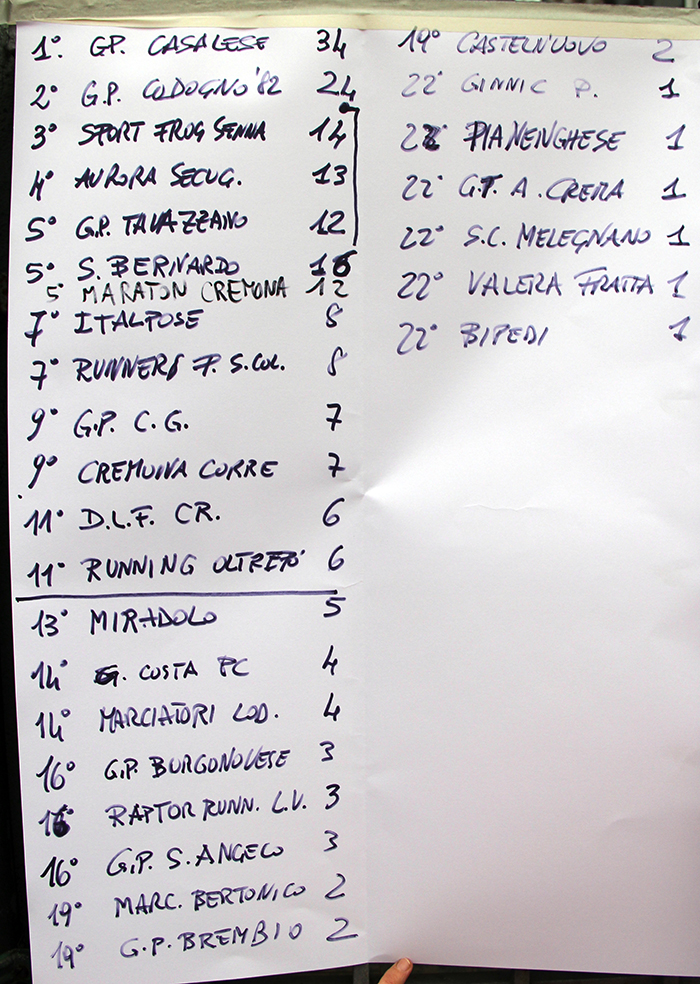 1° GP. CASALESE 34
2° G.P. CODOGNO '82 24
3° SPORT FROG SENNA 14
4° AURORA SECUG. 13
5° G.P. TAVAZZANO 12
5° S. BERNARDO
5° MARATON CREMONA 12
7° ITALPOSE 8
7° RUNNERS P. S.COL. 8
9° G.P. C.G. 7
9° CREMONA CORRE 7
11° D.L.F. CR. 6
11° RUNNING OLTREPO' 6
13° MIRADOLO 5
14° G. COSTA PC 4
14° MARCIATORI LOD. 4
16° G.P. BORGONOVESE 3
16° RAPTOR RUNN. L.V. 3
16° G.P. S. ANGELO 3
19° MARC. BERTONICO 2
19° G.P. BREMBIO 2
19° CASTELNUOVO 2
22° GINNIC P. 1
22° PIANENGHESE 1
22° G.T. A. CREMA 1
22° S.C. MELEGNANO 1
22° VALERA FRATTA 1
22° BIPEDI 1